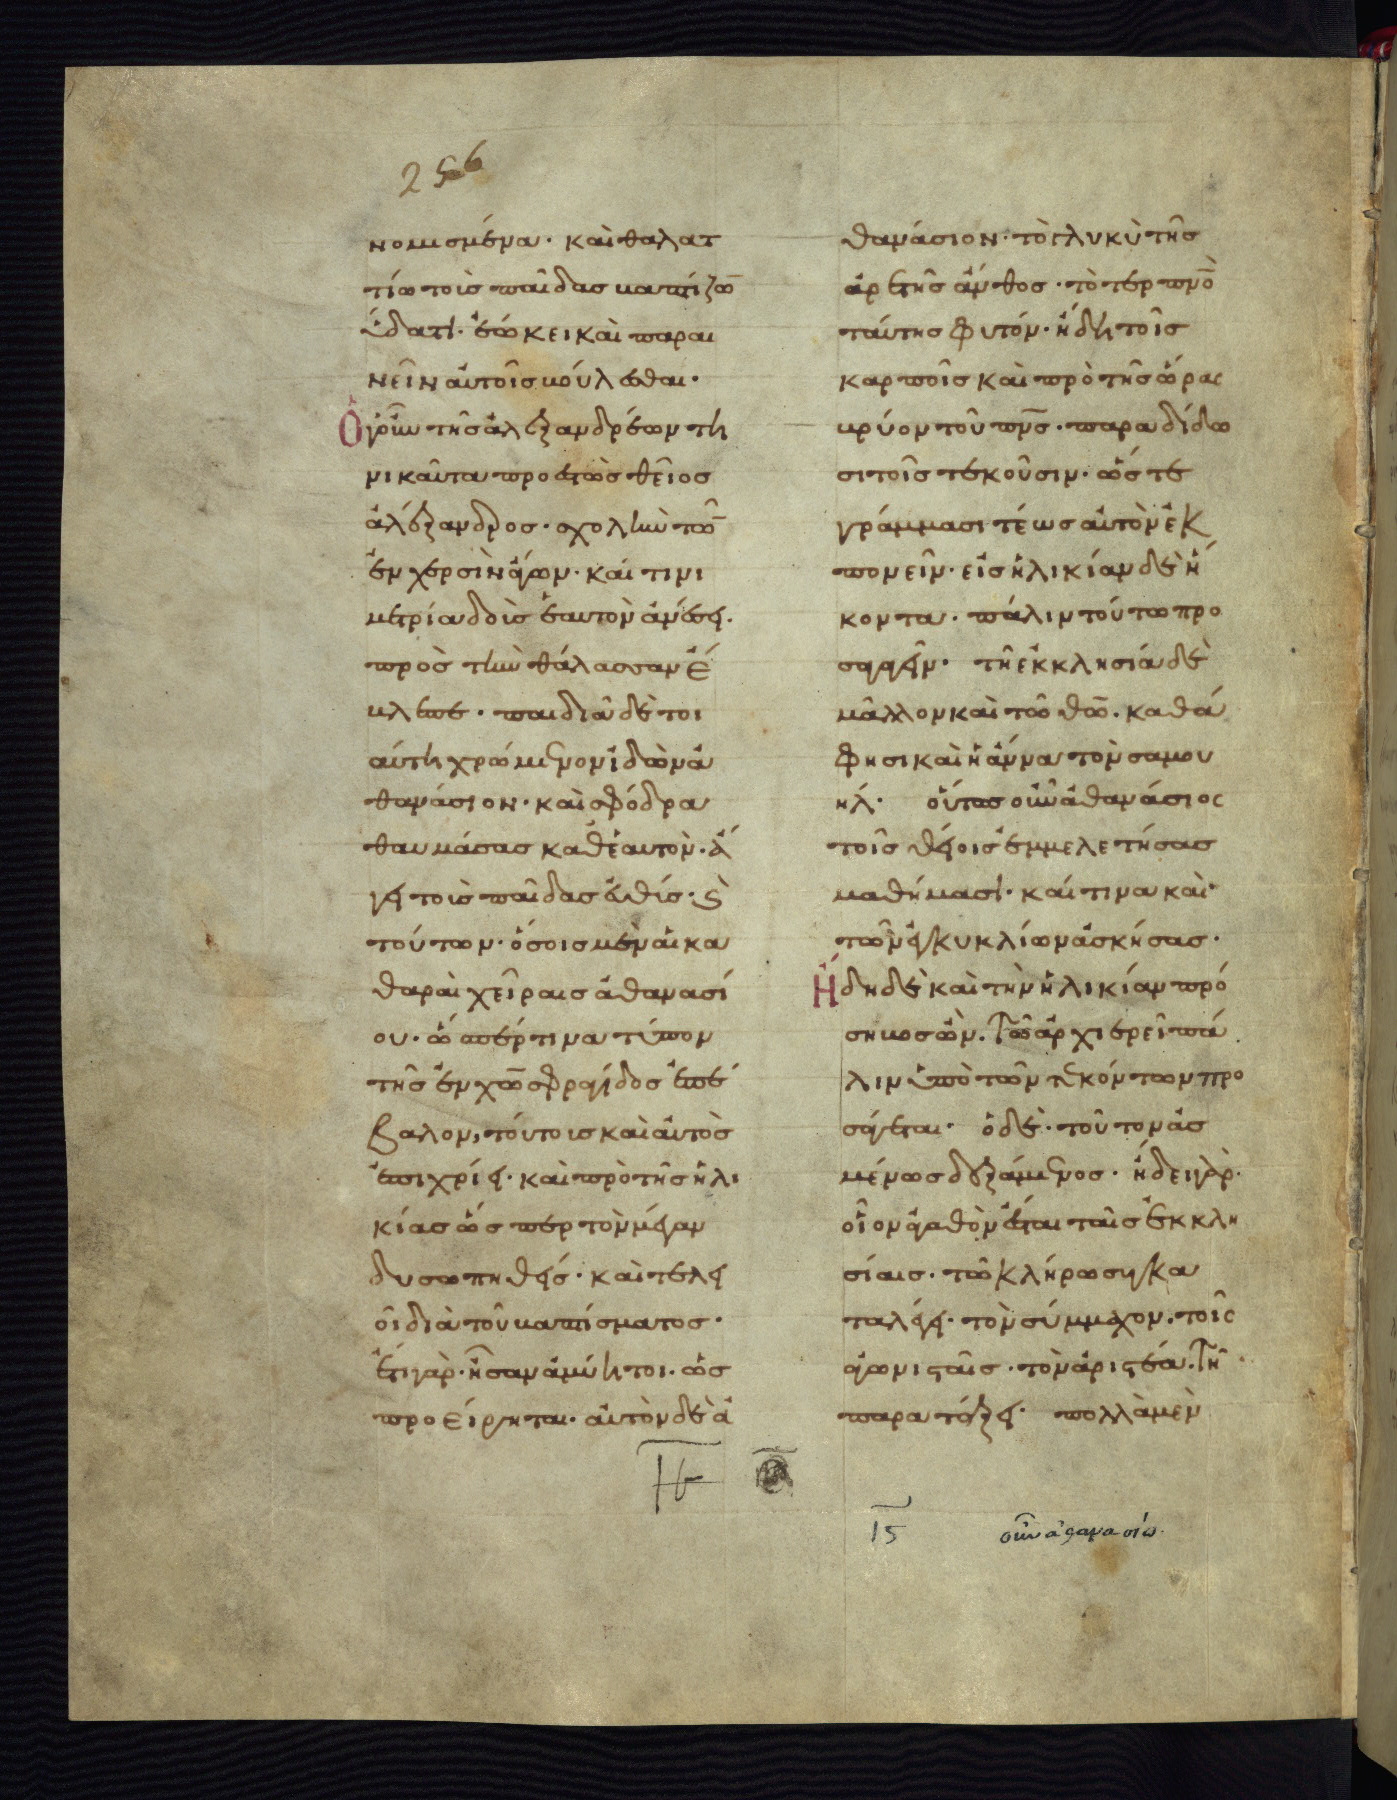 256
νομισμένα· καὶ θαλατ
τίω τοὺς παῖδας βαπτίζω̅
ὕδατι· ἐῴκει καὶ παραι
νεῖν αὐτοῖς βούλεσθαι·
Ὁ γοῦν τῆς ἀλεξανδρέων τη
νικαῦτα προεστὼς θεῖος
ἀλέξανδρος· σχολὴν τω̅
ἐν χερσὶν ἄγων· καί τινι
μετρία δοὺς ἑαυτὸν ἀνέσει·
πρὸς τὴν θάλασσαν ἔ
βλεπε· παιδιᾶ δὲ τοι
αύτη χρώμενον ἰδὼν ἀ
θανάσιον· καὶ σφόδρα
θαυμάσας καθ' ἑαυτὸν· ἄ
γει τοὺς παῖδας εὐθύς· καὶ
τούτων· ὅσοις μὲν αἱ κα
θαραὶ χεῖραις ἀθανασί
ου· ὥσπερ τινα τύπον
τῆς ἐν χω̅ σφραγίδος ἐπέ
βαλον, τούτοις καὶ αὐτὸς
ἐπιχρίει· καὶ πρὸ τῆς ἡλι
κίας ὥσπερ τὸν μέγαν
δυσωπηθείς· καὶ τελει
οῖ διὰ τοῦ βαπτίσματος·
ἔτι γὰρ· ἦσαν ἀμύητοι· ὡς
προείρηται· αὐτὸν δὲ ἀ
θανάσιον· τὸ γλυκὺ τῆς
ἀρετῆς ἄνθος· τὸ τερπνο̅
ταύτης φυτόν· ἤδη τοῖς
καρποῖς καὶ πρὸ τῆς ὥρας
βρύον τοῦ πν̅ς· παραδίδω
σι τοῖς τεκοῦσιν· ὥστε
γράμμασι τέως αὐτὸν ἐκ
πονεῖν· εἰς ἡλικίαν δὲ ἥ
κοντα· πάλιν τούτω προ
σαγαγεῖν· τῆ ἐκκλησία δὲ
μᾶλλον καὶ τῶ θω̅· καθά
φησι καὶ ἡ ἄννα τὸν σαμου
ήλ· οὕτως οὖν ἀθανάσιος
τοῖς θείοις ἐμμελετήσας
μαθήμασι· καί τινα καὶ
τῶν ἐγκυκλίων ἀσκήσας·
Ἤδη δὲ καὶ τὴν ἡλικίαν πρό
σηβος ὤν· τῶ ἀρχιερεῖ πά
λιν ὑπὸ τῶν τεκόντων προ
σάγεται· ὁ δὲ· τοῦτον ἀσ
μένως δεξάμενος· ἤδει γὰρ·
οἷον ἀγαθὸν ἔσται ταῖς ἐκκλη
σίαις· τῶ κλήρω συγκα
ταλέγει· τὸν σύμμαχον· τοῖς
ἀγωνισταῖς· τὸν ἀριστέα· τῆ
παρατάξει· πολλὰ μὲν
ις̅
οὖν ἀθανασίω